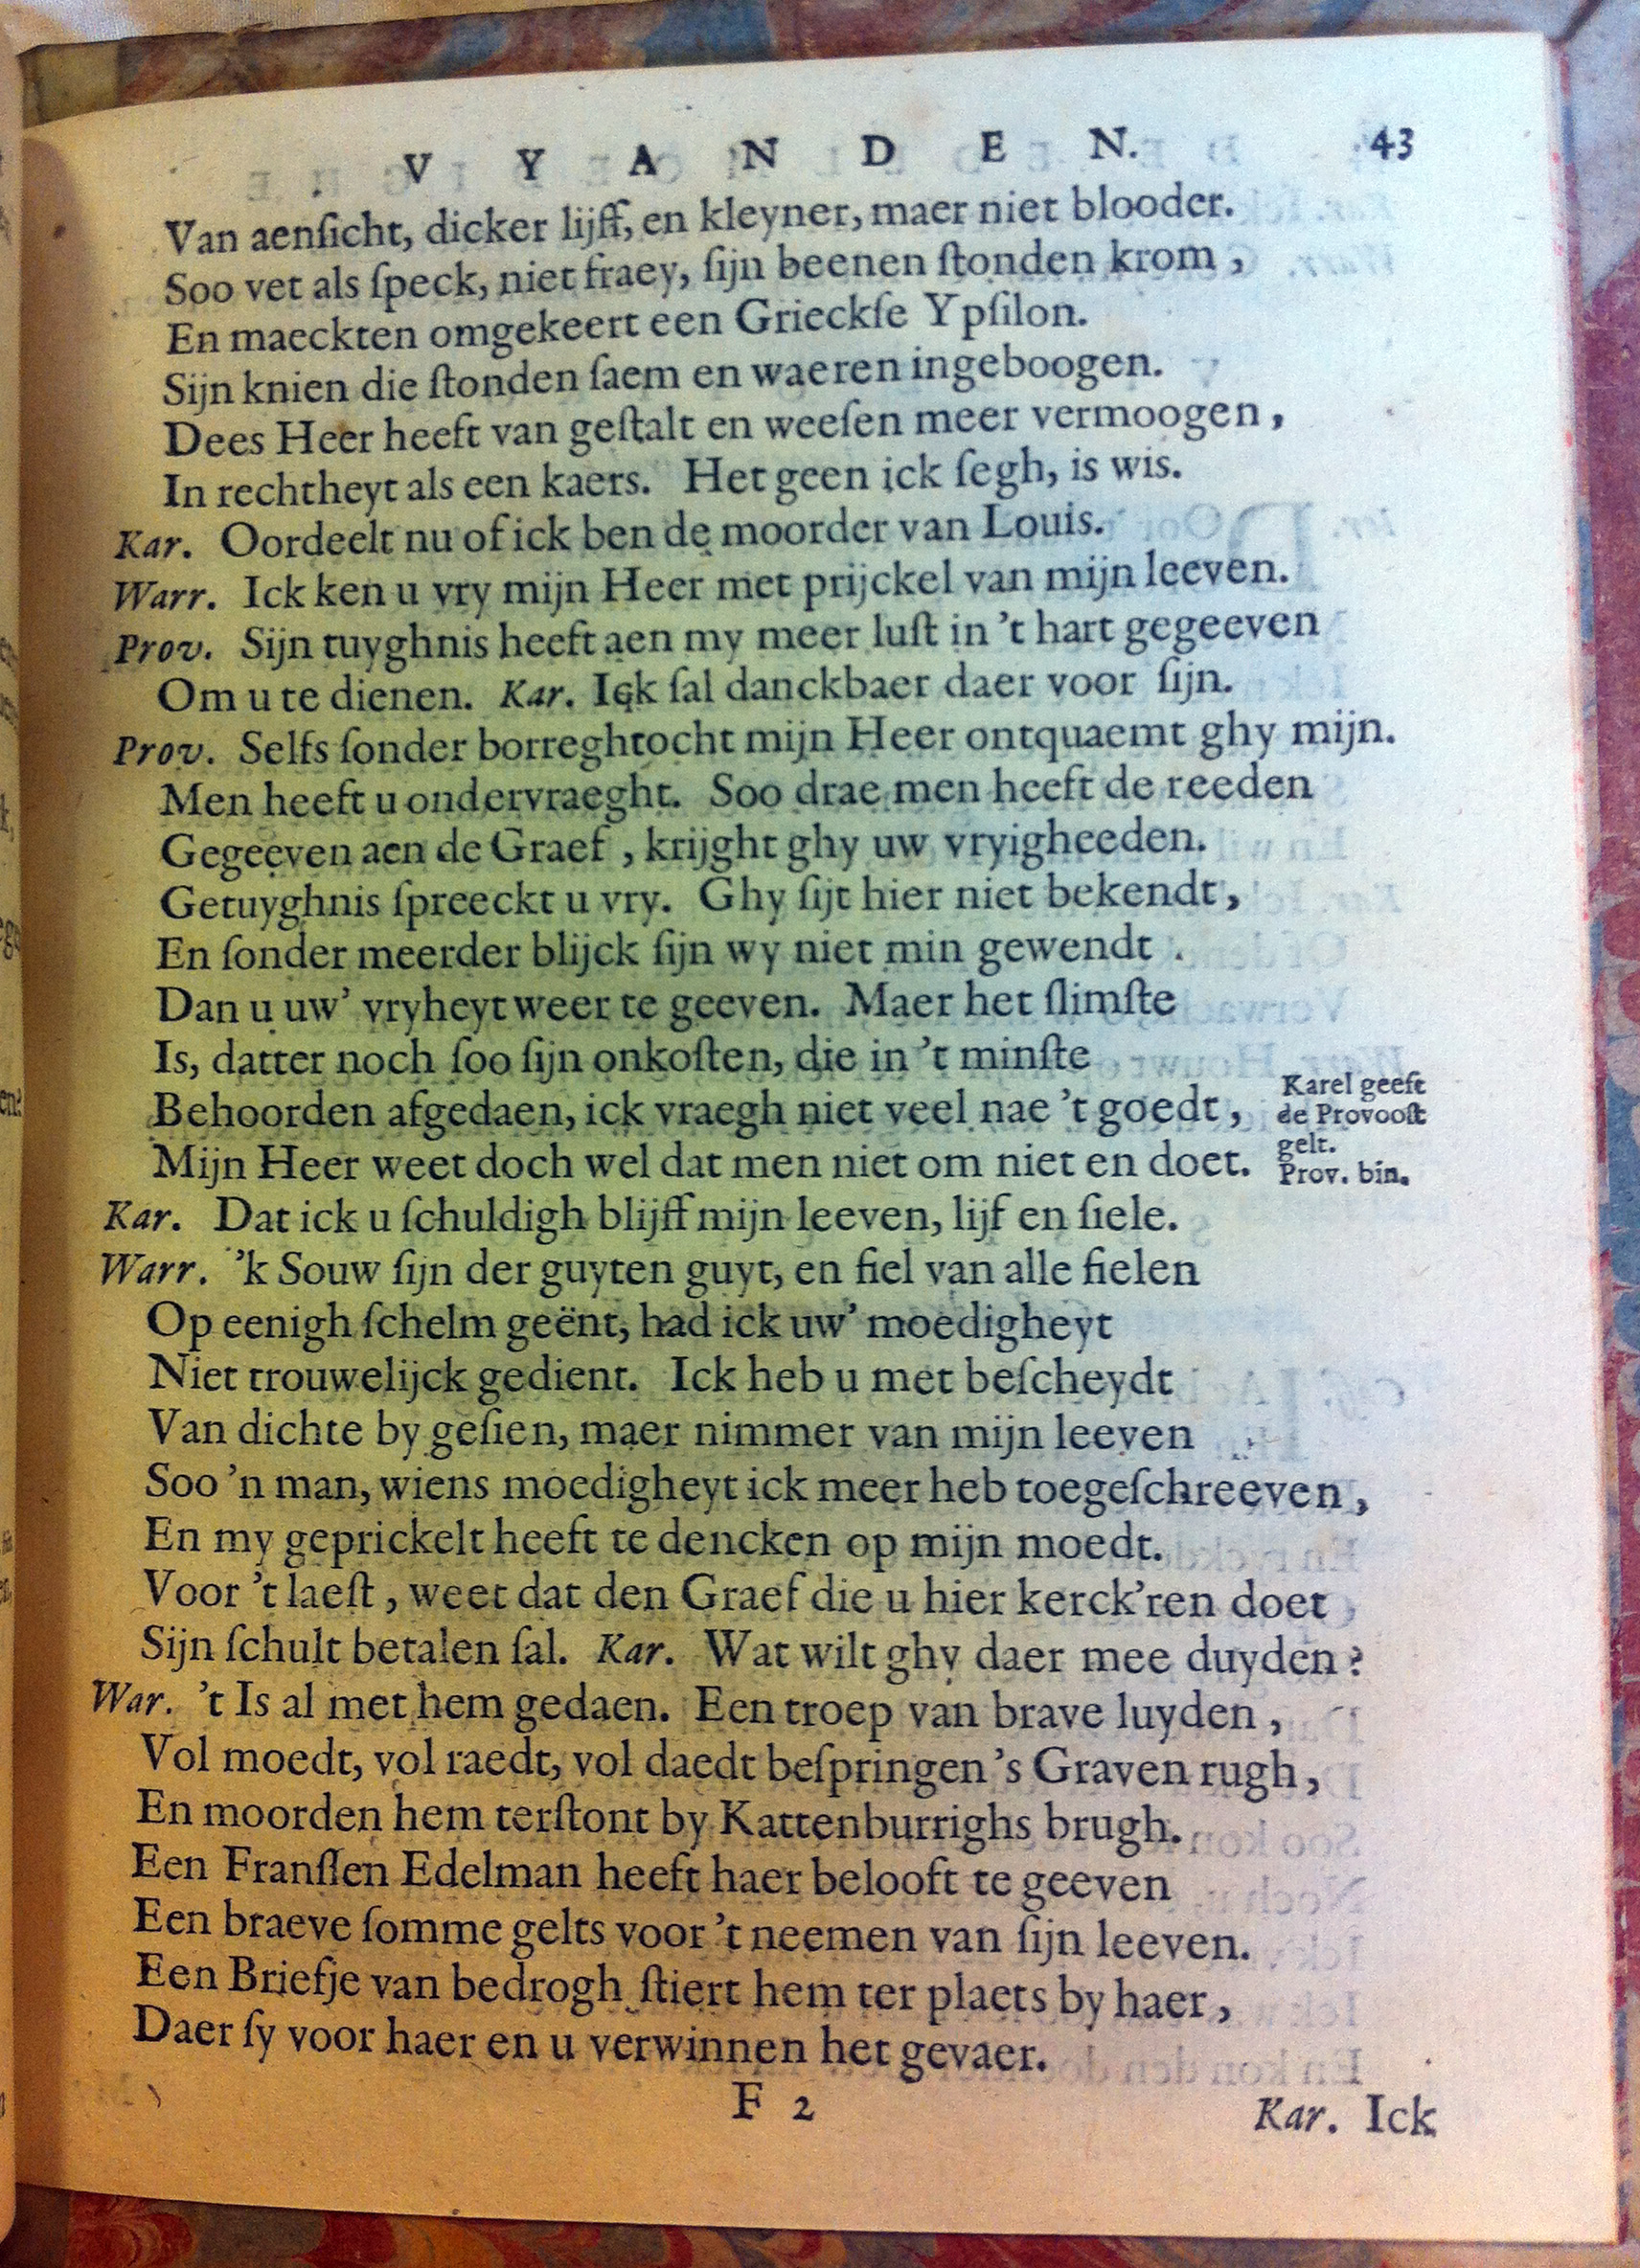 V Y A N D E N. 43
Van aenſicht, dicker lijff, en kleyner, maer niet blooder.
Soo vet als ſpeck, niet fraey, ſijn beenen ſtonden krom,
En maeckten omgekeert een Grieckſe Ypſilon.
Sijn knien die ſtonden ſaem en waeren ingeboogen.
Dees Heer heeft van geſtalt en weeſen meer vermoogen,
In rechtheyt als een kaers. Het geen ick ſegh, is wis.
Kar. Oordeelt nu of ick ben de moorder van Louis.
Warr. Ick ken u vry mijn Heer met prijckel van mijn leeven.
Prov. Sijn tuyghnis heeft aen my meer luſt in 't hart gegeeven
Om u te dienen. Kar. Ick ſal danckbaer daer voor ſijn.
Prov. Selfs ſonder borreghtocht mijn Heer ontquaemt ghy mijn.
Men heeft u ondervraeght. Soo drae men heeft de reeden
Gegeeven aen de Graef, krijght ghy uw vryigheeden.
Getuyghnis ſpreeckt u vry. Ghy ſijt hier niet bekendt,
En ſonder meerder blijck ſijn wy niet min gewendt.
Dan u uw' vryheyt weer te geeven. Maer het ſlimſte
Is, datter noch ſoo ſijn onkoſten, die in 't minſte
Behoorden afgedaen, ick vraegh niet veel nae 't goedt,
Mijn Heer weet doch wel dat men niet om niet en doet.
Karel geeft
de Provooſt
gelt.
Prov. bin.
Kar. Dat ick u ſchuldigh blijff mijn leeven, lijf en ſiele.
Warr. 'k Souw ſijn der guyten guyt, en fiel van alle fielen
Op eenigh ſchelm geënt, had ick uw' moedigheyt
Niet trouwelijck gedient. Ick heb u met beſcheydt
Van dichte by geſien, maer nimmer van mijn leeven
Soo 'n man, wiens moedigheyt ick meer heb toegeſchreeven,
En my geprickelt heeft te dencken op mijn moedt.
Voor 't laeſt, weet dat den Graef die u hier kerck'ren doet
Sijn ſchult betalen ſal. Kar. Wat wilt ghy daer mee duyden?
War. 't Is al met hem gedaen. Een troep van brave luyden,
Vol moedt, vol raedt, vol daedt beſpringen 's Graven rugh,
En moorden hem terſtont by Kattenburrighs brugh.
Een Franſſen Edelman heeft haer belooft te geeven
Een braeve ſomme gelts voor 't neemen van ſijn leeven.
Een Briefje van bedrogh ſtiert hem ter plaets by haer,
Daer ſy voor haer en u verwinnen het gevaer.
F 2
Kar. Ick